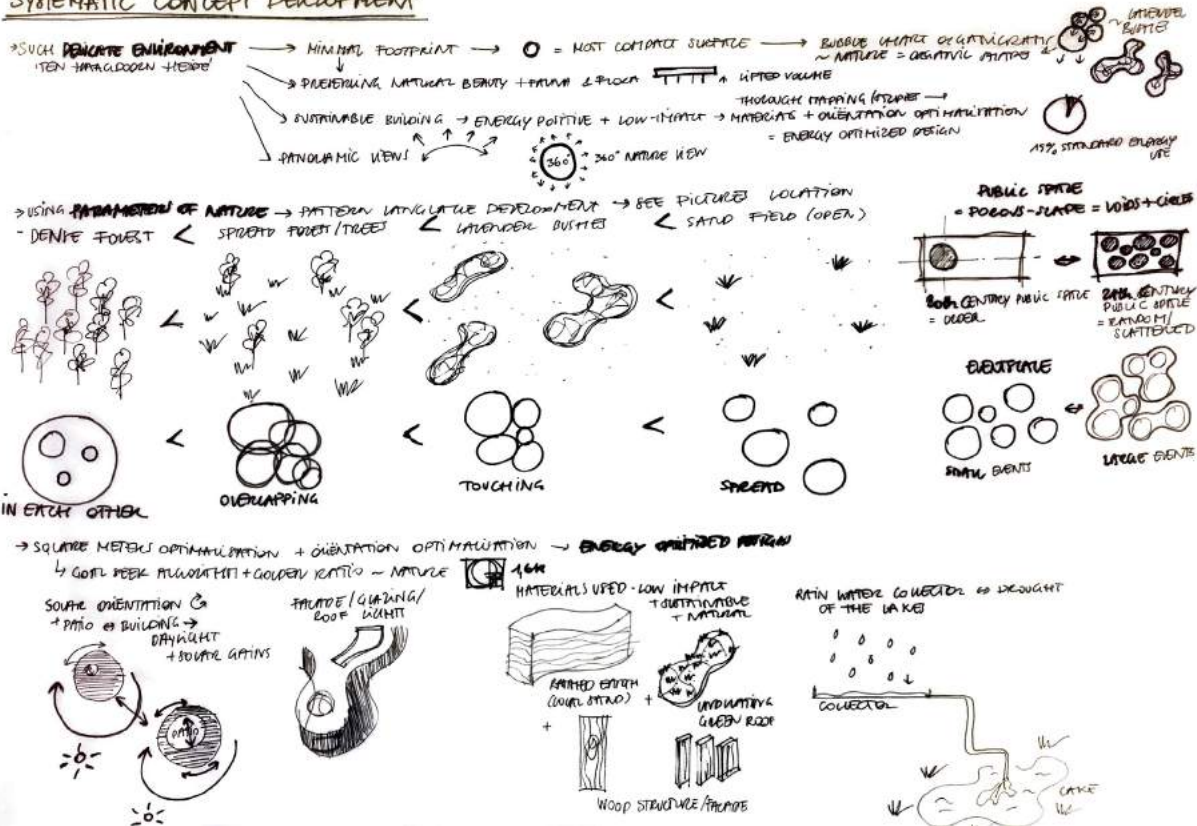 SYSTEMATIC CONCEPT DEVELOPMENT
→ SUCH DELICATE ENVIRONMENT → MINIMAL FOOTPRINT → O = MOST COMPACT SURFACE → BUBBLE CHART ORGANIGRAM
~ NATURE = ORGANIC SHAPE
~ LAVENDEL
BUSHES
'TEN HAAGDOORN HEIDE'
→ PRESERVING NATURAL BEAUTY + FAUNA & FLORA
↑ LIFTED VOLUME
→ SUSTAINABLE BUILDING → ENERGY POSITIVE + LOW-IMPACT →
THOROUGH MAPPING/STUDIES →
MATERIALS + ORIENTATION OPTIMALISATION
= ENERGY OPTIMIZED DESIGN
15% STANDARD ENERGY
USE
→ PANORAMIC VIEWS
360°
360° NATURE VIEW
→ USING PARAMETERS OF NATURE → PATTERN LANGUAGE DEVELOPMENT → SEE PICTURES LOCATION
- DENSE FOREST < SPREAD FOREST/TREES < LAVENDER BUSHES < SAND FIELD (OPEN)
PUBLIC SPACE
= POROUS-SCAPE = VOIDS + CIRCLES
20th CENTURY PUBLIC SPACE
= ORDER
21th CENTURY
PUBLIC SPACE
= RANDOM/
SCATTERED
< < <
EVENTSPACE
SMALL EVENTS
LARGE EVENTS
< < <
IN EACH OTHER
OVERLAPPING
TOUCHING
SPREAD
→ SQUARE METERS OPTIMALISATION + ORIENTATION OPTIMALISATION → ENERGY OPTIMIZED DESIGN
↳ GOAL SEEK ALGORITHM + GOLDEN RATIO ~ NATURE
SOLAR ORIENTATION
+ PATIO ⇔ BUILDING →
DAYLIGHT
+ SOLAR GAINS
PATIO
FACADE/GLAZING/
ROOF LIGHT
MATERIALS USED - LOW IMPACT
+ SUSTAINABLE
+ NATURAL
RAMMED EARTH
(LOCAL SAND) +
UNDULATING
GREEN ROOF
+
WOOD STRUCTURE/FACADE
RAIN WATER COLLECTOR ⇔ DROUGHT
OF THE LAKES
COLLECTOR
LAKE